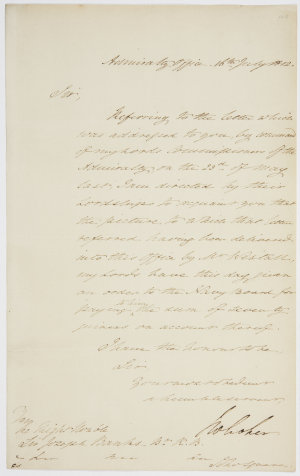 Admiralty Office 16th July 1812.
Sir,
Referring to the letter which
was addressed to you, by command
of my Lords Commissioners of the
Admiralty, on the of May
last, I am directed by their
Lordships to acquaint you that
the picture to which that letter
referred having been delivered
into this Office by Mr Westall
my Lords have this day given
an order to the Navy Board for
paying to him the sum of seventy
guineas on account thereof.
I have the honour to be
Sir
Your most obedient
humble servant
The Right Honble
Sir Joseph Banks, Bt. K.B.
Soho Square